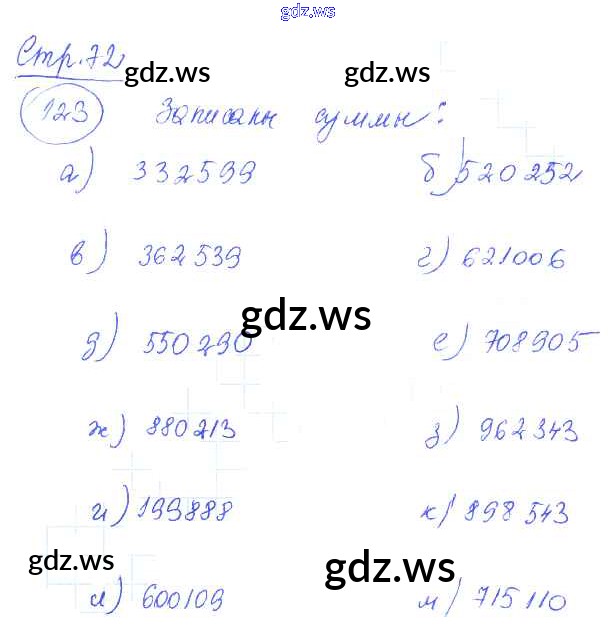 gdz.ws
Стр. 72
gdz.ws gdz.ws
123 Записаны суммы:
а) 332599 б) 520252
в) 362539 г) 621006
gdz.ws
д) 550290 е) 708905
ж) 880213 з) 962343
и) 199888 к) 898543
gdz.ws gdz.ws
л) 600109 м) 715110